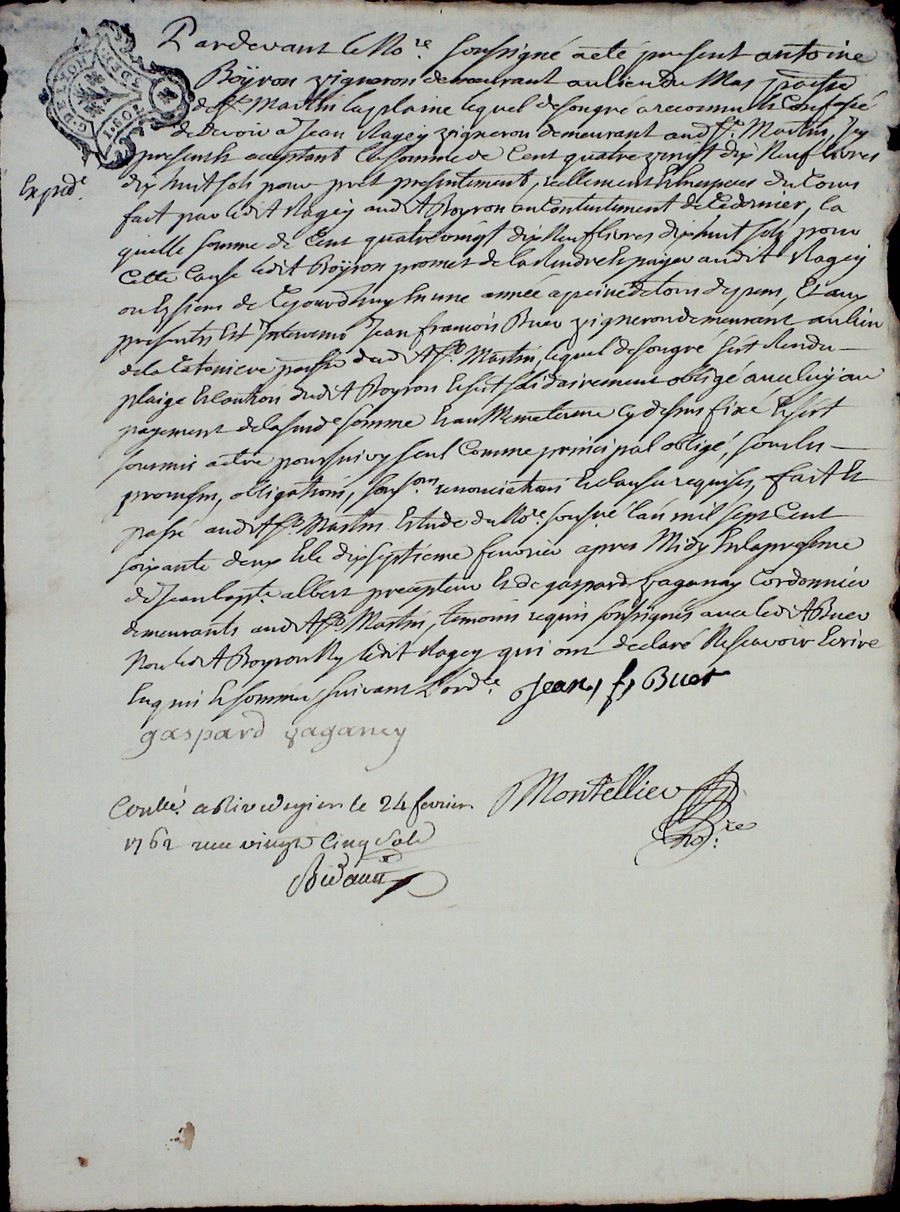 G. DE LYON
Pardevant le No.re soussigné a eté present antoine
Boÿron vigneron demeurant au lieu du Mas parsse
de St Martin la plaine lequel de son gre a reconnu et confessé
de devoir a Jean Ragey vigneron demeurant aud St. Martin, Icy
present et acceptant la somme de Cent quatre vingt dix Neuf livres
Expedé.
dix huit sols pour pret presentement, reellement et en especes du Cours
fait par ledit Ragey audit Boyron au Contentement de Ce dernier, la
quelle somme de Cent quatre vingt dix Neuf livres dix huit sols pour
Cette Cause ledit Boÿron promet de la rendre et payer audit Ragey
ou Es siens de Cejourdhuy En une année a peine de tous depens, Et aux
presentes Est Intervenu Jean francois Buer vigneron demeurant au lieu
de la Catoniere parsse dudit St Martin, lequel de son gre s'est Rendu
plaige et Caution dudit Boyron et s'est solidairement obligé avec luy au
payement de la susde somme Et au meme terme Cy dessus fixé et s'est
soumis a etre poursuivy seul Comme principal obligé, sous les
promesses, obligations, soumons, renonciations et Clauses requises, fait et
passé audit St Martin Estude du No.re sousné l'an mil sept Cent
soixante deux et le dix septieme fevrier apres Midy En la presence
de Jean Bapte. albert precepteur et de gaspard vaganay Cordonnier
demeurants audit St Martin, temoins requis soussignés avec ledit Buer
Non ledit Boyron Ny ledit Ragey qui ont declaré Ne scavoir Ecrire
Enquis et sommés suivant l'orde.
Jean, f, Buer
gaspard vaganey
Conllé. a Rivedegier le 24 fevrier
1762 reçu vingt Cinq sols
Montellier
No.re